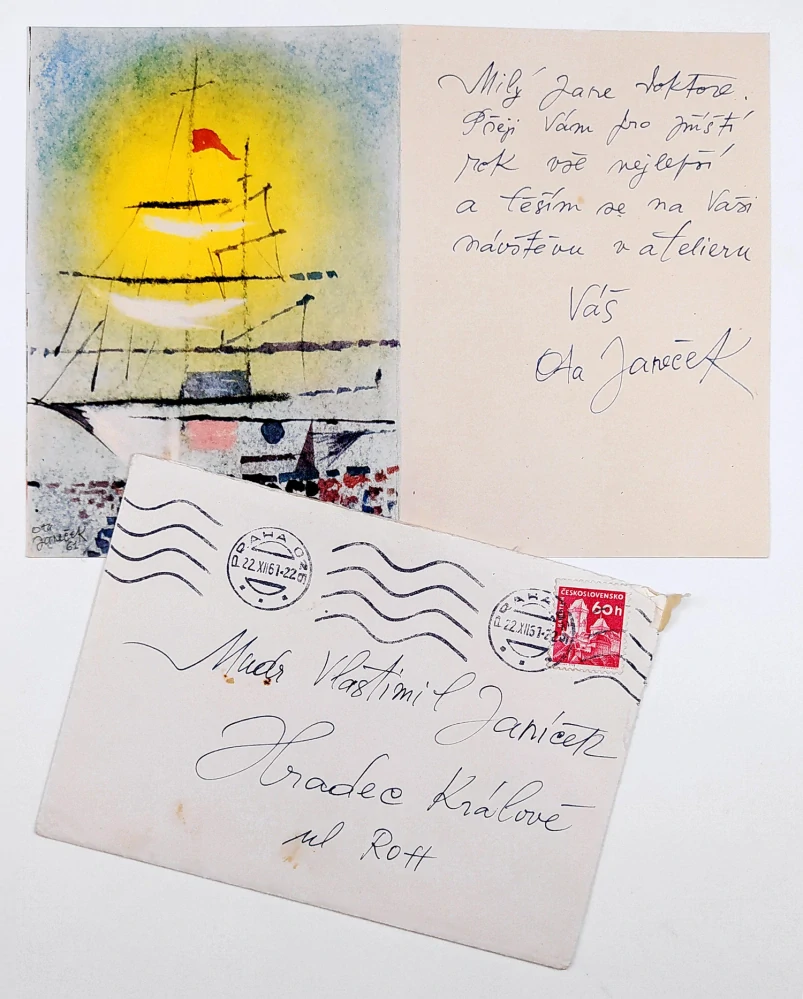 Milý Pane Doktore.
Přeji Vám pro příští
rok vše nejlepší
a těším se na Vaši
návštěvu v atelieru
Váš
Ota Janeček
Ota
Janeček
61
PRAHA 025
22.XII61-22
PRAHA
22.XII61-22
ČESKOSLOVENSKO
60h
Mudr Vlastimil Janíček
Hradec Králové
ul